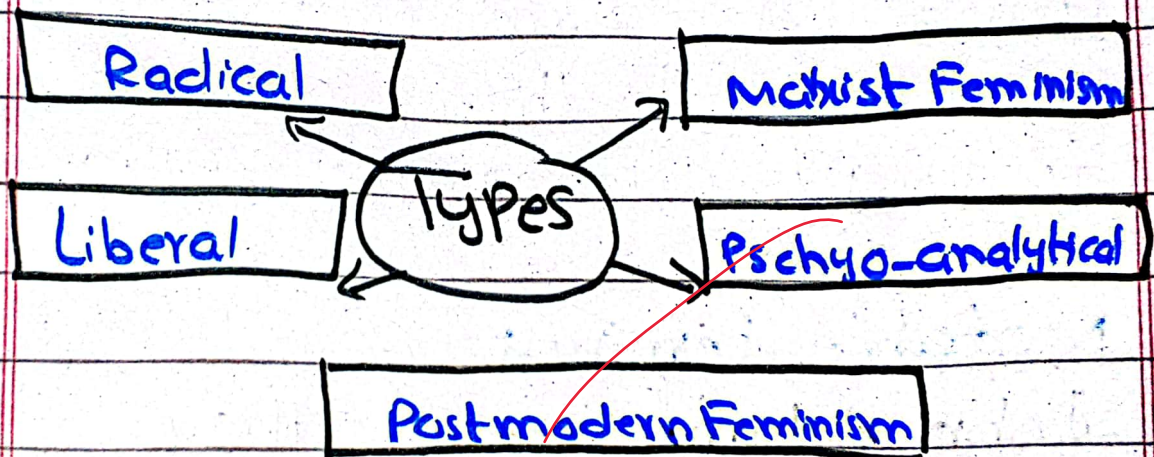 Radical
Marxist Feminism
Types
Liberal
Pschyo-analytical
Postmodern Feminism